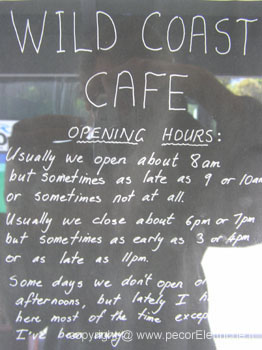 WILD COAST
CAFE
OPENING HOURS:
Usually we open about 8am
but sometimes as late as 9 or 10am
or sometimes not at all.
Usually we close about 6pm or 7pm
but sometimes as early as 3 or 4pm
or as late as 11pm.
Some days we don't open
afternoons, but lately I
here most of the time
I've been
copyright@ www.pecorElectric.com